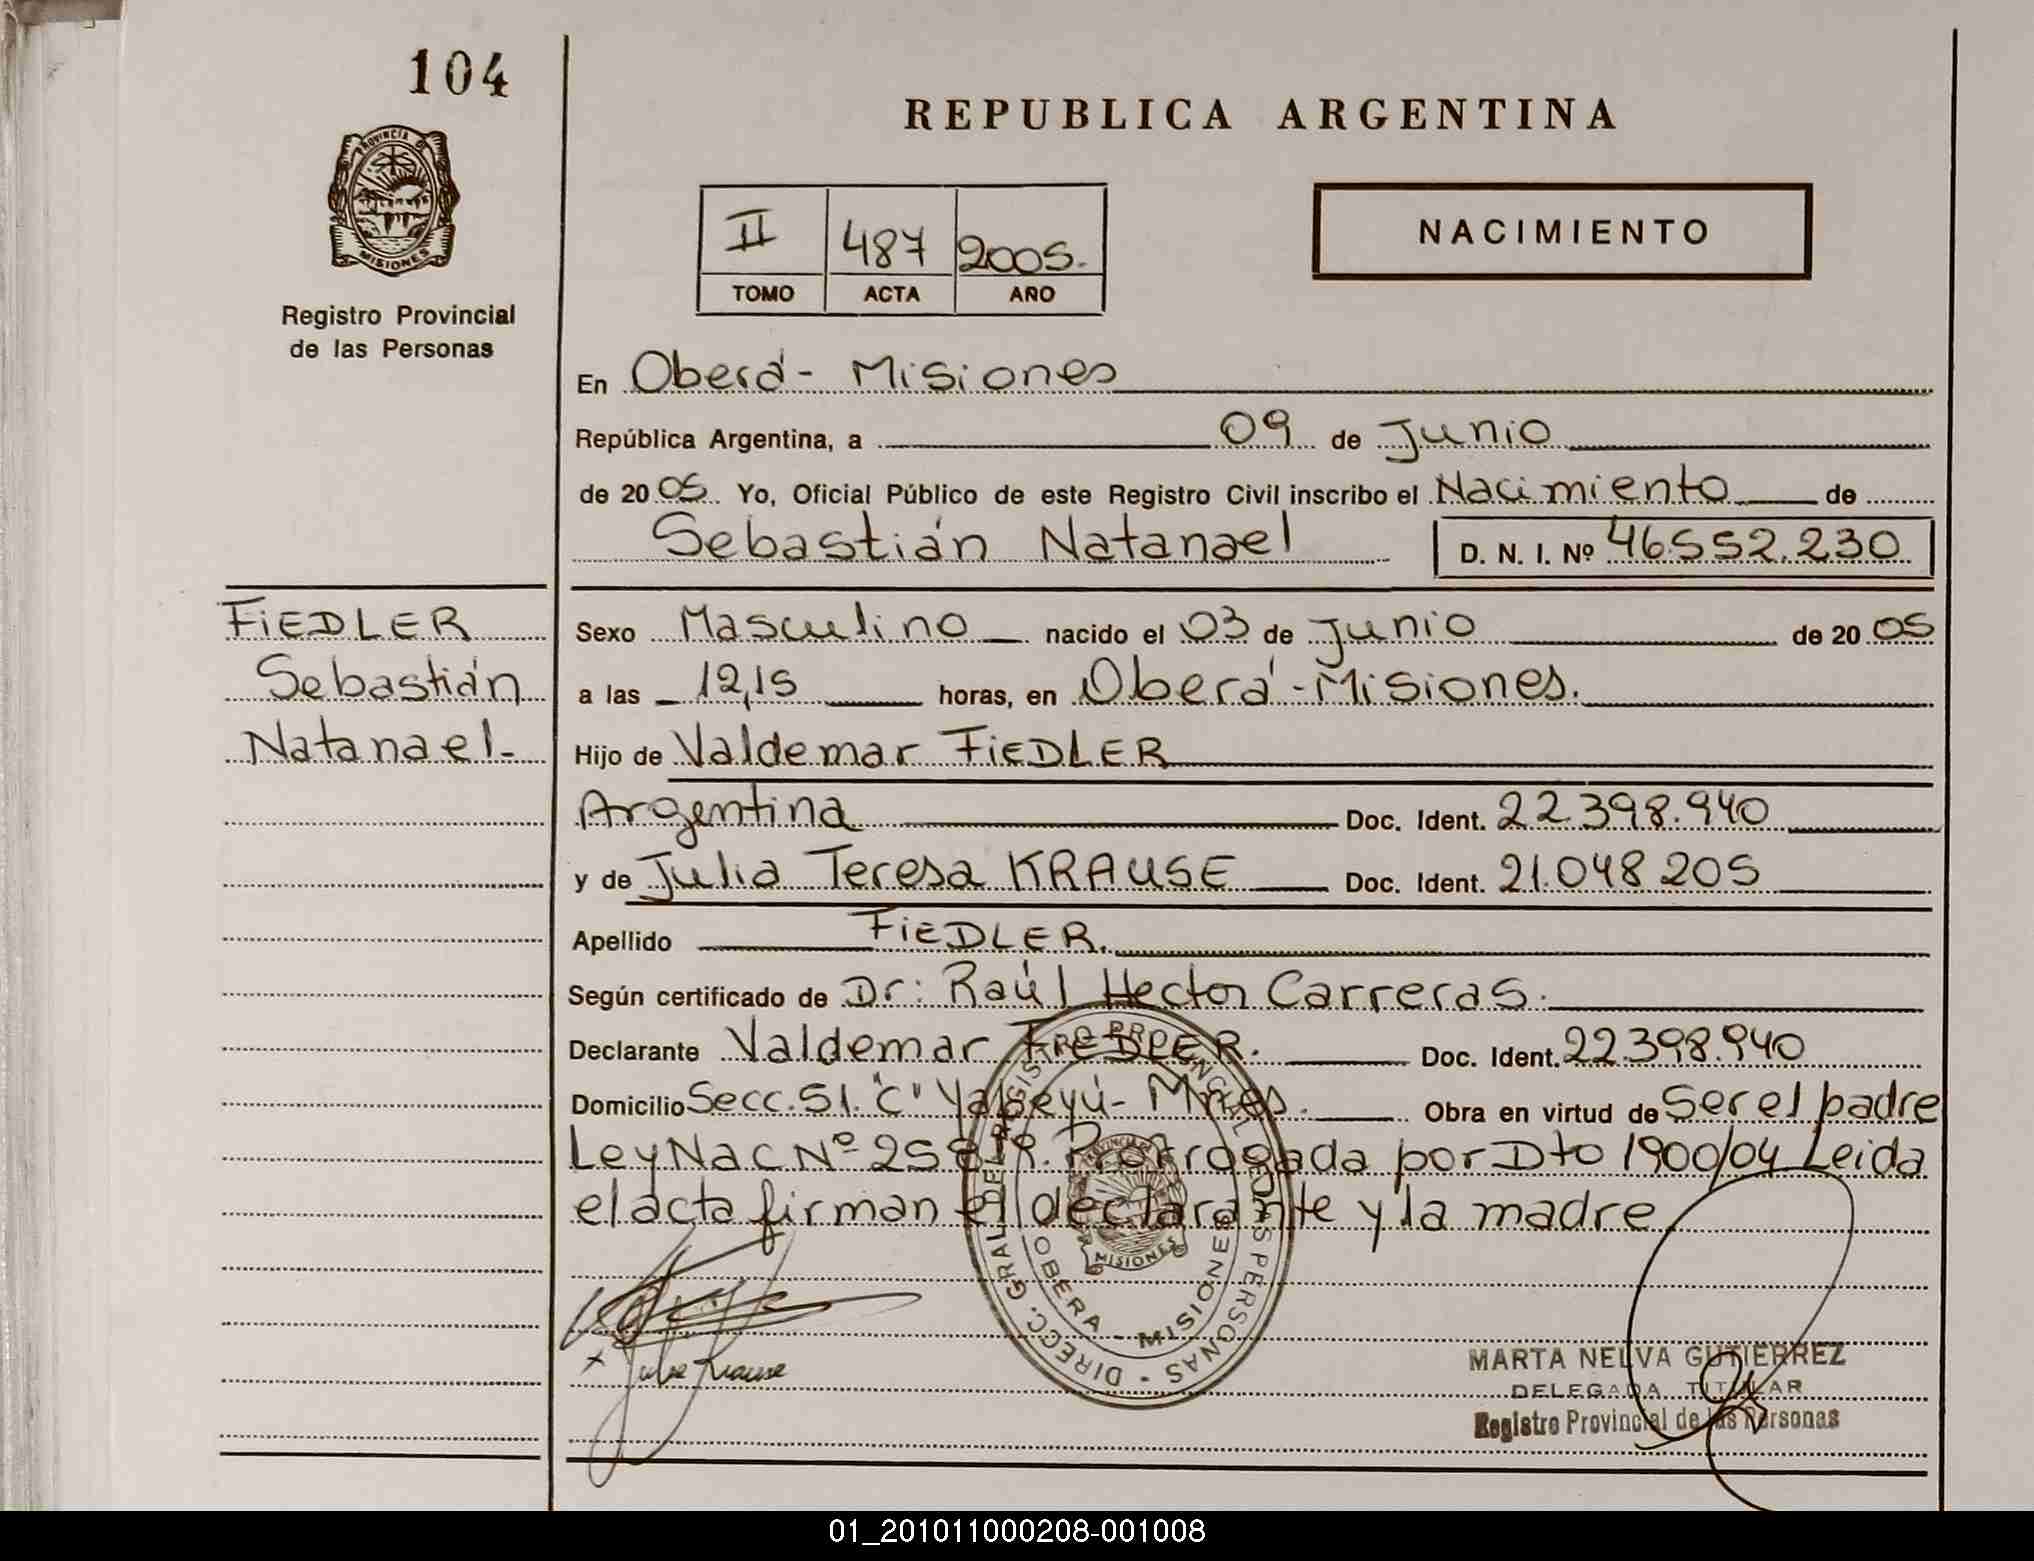 104
PROVINCIA DE
MISIONES
Registro Provincial
de las Personas
REPUBLICA ARGENTINA
II 487 2005.
TOMO ACTA AÑO
NACIMIENTO
En Oberá - Misiones
República Argentina, a 09 de Junio
de 20 05 Yo, Oficial Público de este Registro Civil inscribo el Nacimiento de
Sebastián Natanael D. N. I. Nº 46.552.230
FiEDLER
Sebastián
Natanael-
Sexo Masculino nacido el 03 de Junio de 20 05
a las 12,15 horas, en Oberá - Misiones.
Hijo de Valdemar FiEDLER
Argentina Doc. Ident. 22.398.940
y de Julia Teresa KRAUSE Doc. Ident. 21.048.205
Apellido FiEDLER.
Según certificado de Dr: Raúl Hector Carreras.
Declarante Valdemar FiEDLER. Doc. Ident. 22.398.940
Domicilio Secc. 51. "C" Yapeyú - Mnes. Obra en virtud de Ser el padre
Ley Nac Nº 25819. Prorrogada por Dto 1900/04 Leida
el acta firman el declarante y la madre
DIRECC. GRAL DEL REGISTRO PROVINCIAL DE LAS PERSONAS
PROVINCIA DE
MISIONES
OBERA - MISIONES
x Julia Krause
MARTA NELVA GUTIERREZ
DELEGADA TITULAR
Registro Provincial de las Personas
01_201011000208-001008